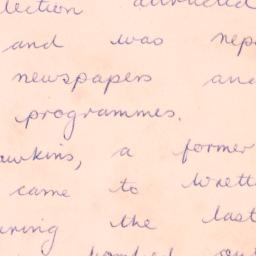 lection attracted
and was rep
newspapers and
programmes.
awkins, a former
came to Wrett
uring the last
bombed out